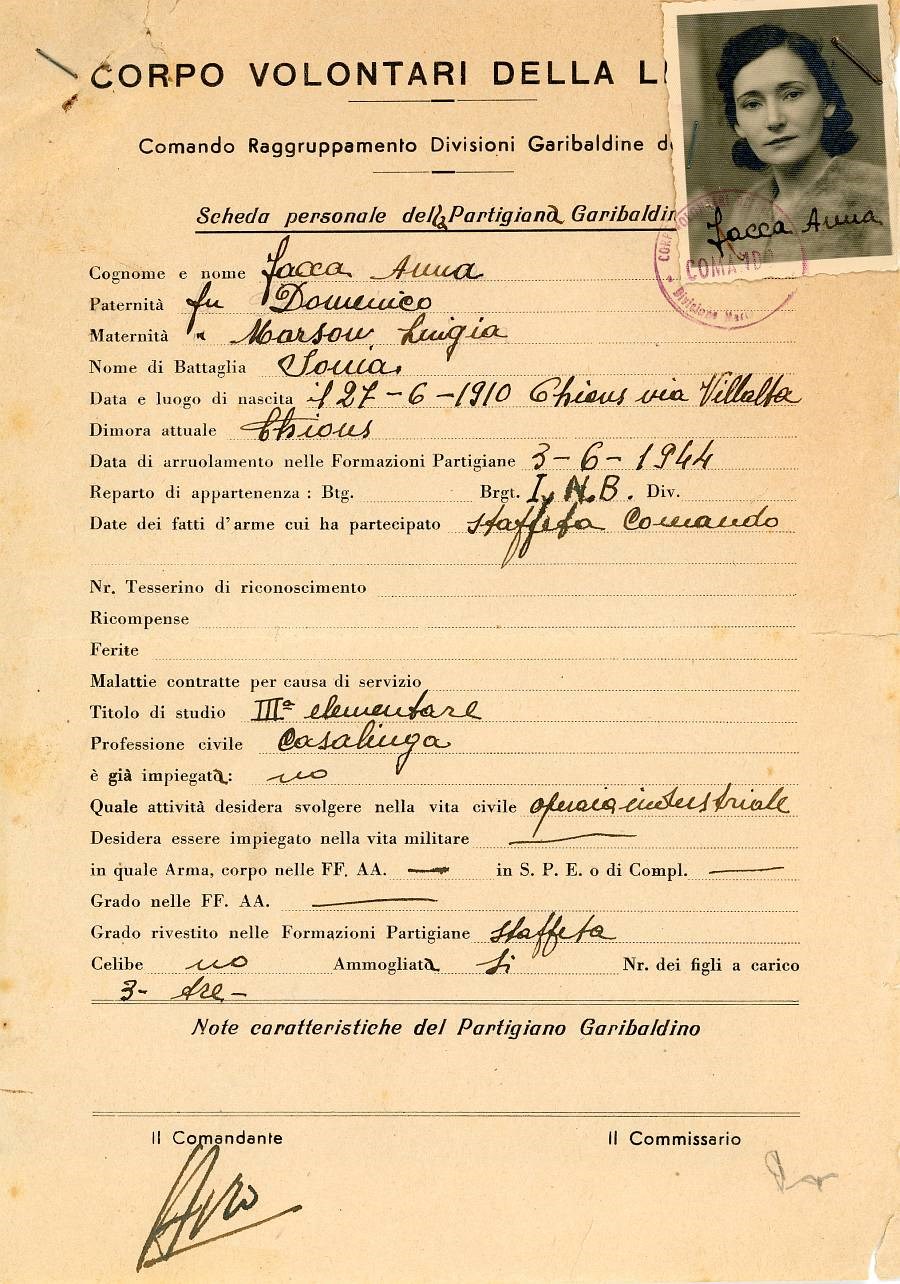 CORPO VOLONTARI DELLA LI
Comando Raggruppamento Divisioni Garibaldine de
Scheda personale della Partigiana Garibaldin
Jacca Anna
COMANDO
Divisione
Cognome e nome Jacca Anna
Paternità fu Domenico
Maternità " Marson Luigia
Nome di Battaglia Sonia
Data e luogo di nascita il 27-6-1910 Chions via Villalta
Dimora attuale Chions
Data di arruolamento nelle Formazioni Partigiane 3-6-1944
Reparto di appartenenza : Btg. Brgt. I. N. B. Div.
Date dei fatti d'arme cui ha partecipato staffeta Comando
Nr. Tesserino di riconoscimento
Ricompense
Ferite
Malattie contratte per causa di servizio
Titolo di studio IIIª elementare
Professione civile casalinga
è già impiegata: no
Quale attività desidera svolgere nella vita civile operaia industriale
Desidera essere impiegato nella vita militare —
in quale Arma, corpo nelle FF. AA. — in S. P. E. o di Compl. —
Grado nelle FF. AA. —
Grado rivestito nelle Formazioni Partigiane staffeta
Celibe no Ammogliata si Nr. dei figli a carico
3- tre-
Note caratteristiche del Partigiano Garibaldino
Il Comandante Il Commissario